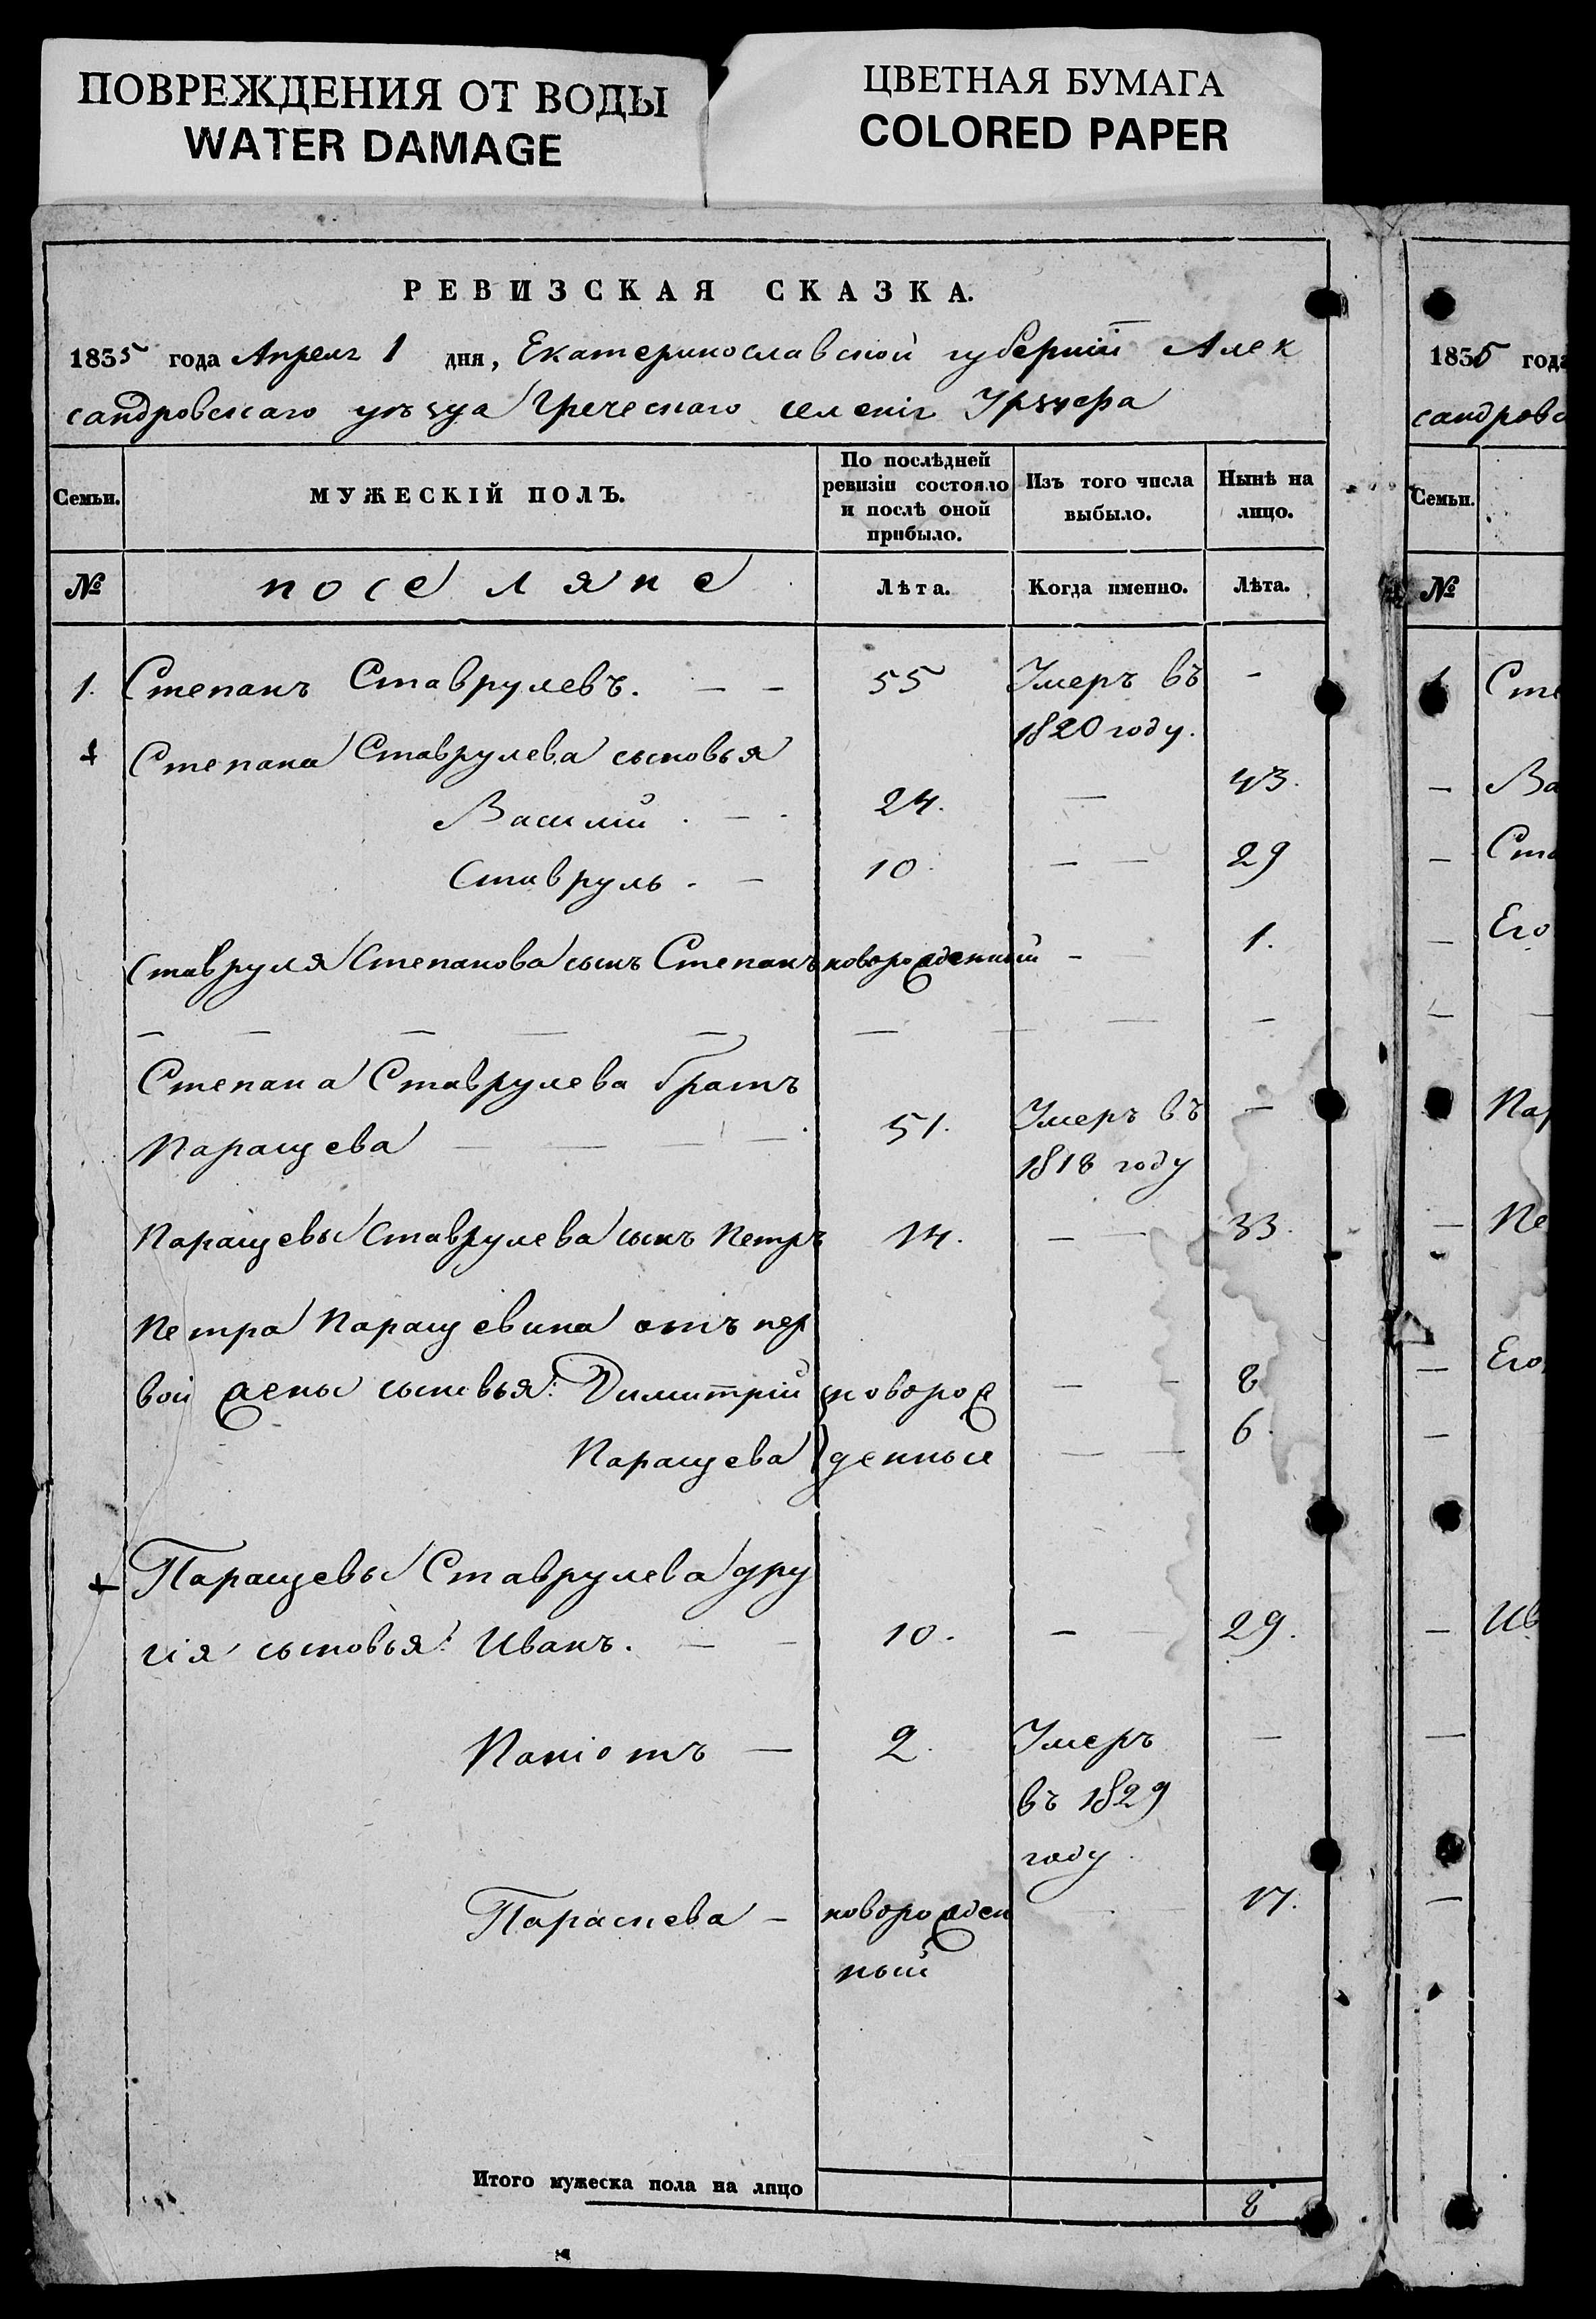 ПОВРЕЖДЕНИЯ ОТ ВОДЫ
WATER DAMAGE
ЦВЕТНАЯ БУМАГА
COLORED PAPER
РЕВИЗСКАЯ СКАЗКА.
1835 года Апреля 1 дня, Екатеринославской губерніи Алек
сандровскаго уѣзда Греческаго селенія Урзуфа
Семьи. МУЖЕСКІЙ ПОЛЪ. По послѣдней ревизіи состояло и послѣ оной прибыло. Изъ того числа выбыло. Нынѣ на лицо.
№ поселяне Лѣта. Когда именно. Лѣта.
1. Степанъ Ставрулевъ. 55 Умеръ въ
1820 году.
Степана Ставрулева сыновья
Василій 24. 43.
Ставруль 10. 29
Ставруля Степанова сынъ Степанъ новорожденный 1.
Степана Ставрулева братъ
Паращева 51. Умеръ въ
1818 году
Паращевы Ставрулева сынъ Петръ 14. 33.
Петра Паращевина отъ пер
вой жены сыновья: Димитрій новорож 8
Паращева денные 6.
Паращевы Ставрулева дру
гія сыновья: Иванъ. 10. 29.
Паніотъ 2. Умеръ
въ 1829
году
Параскева новорожден 17.
ный
Итого мужеска пола на лицо 8
1835 года
сандровс
Семьи.
№
Сте
Ва
Ста
Его
Пар
Пе
Его
Ив